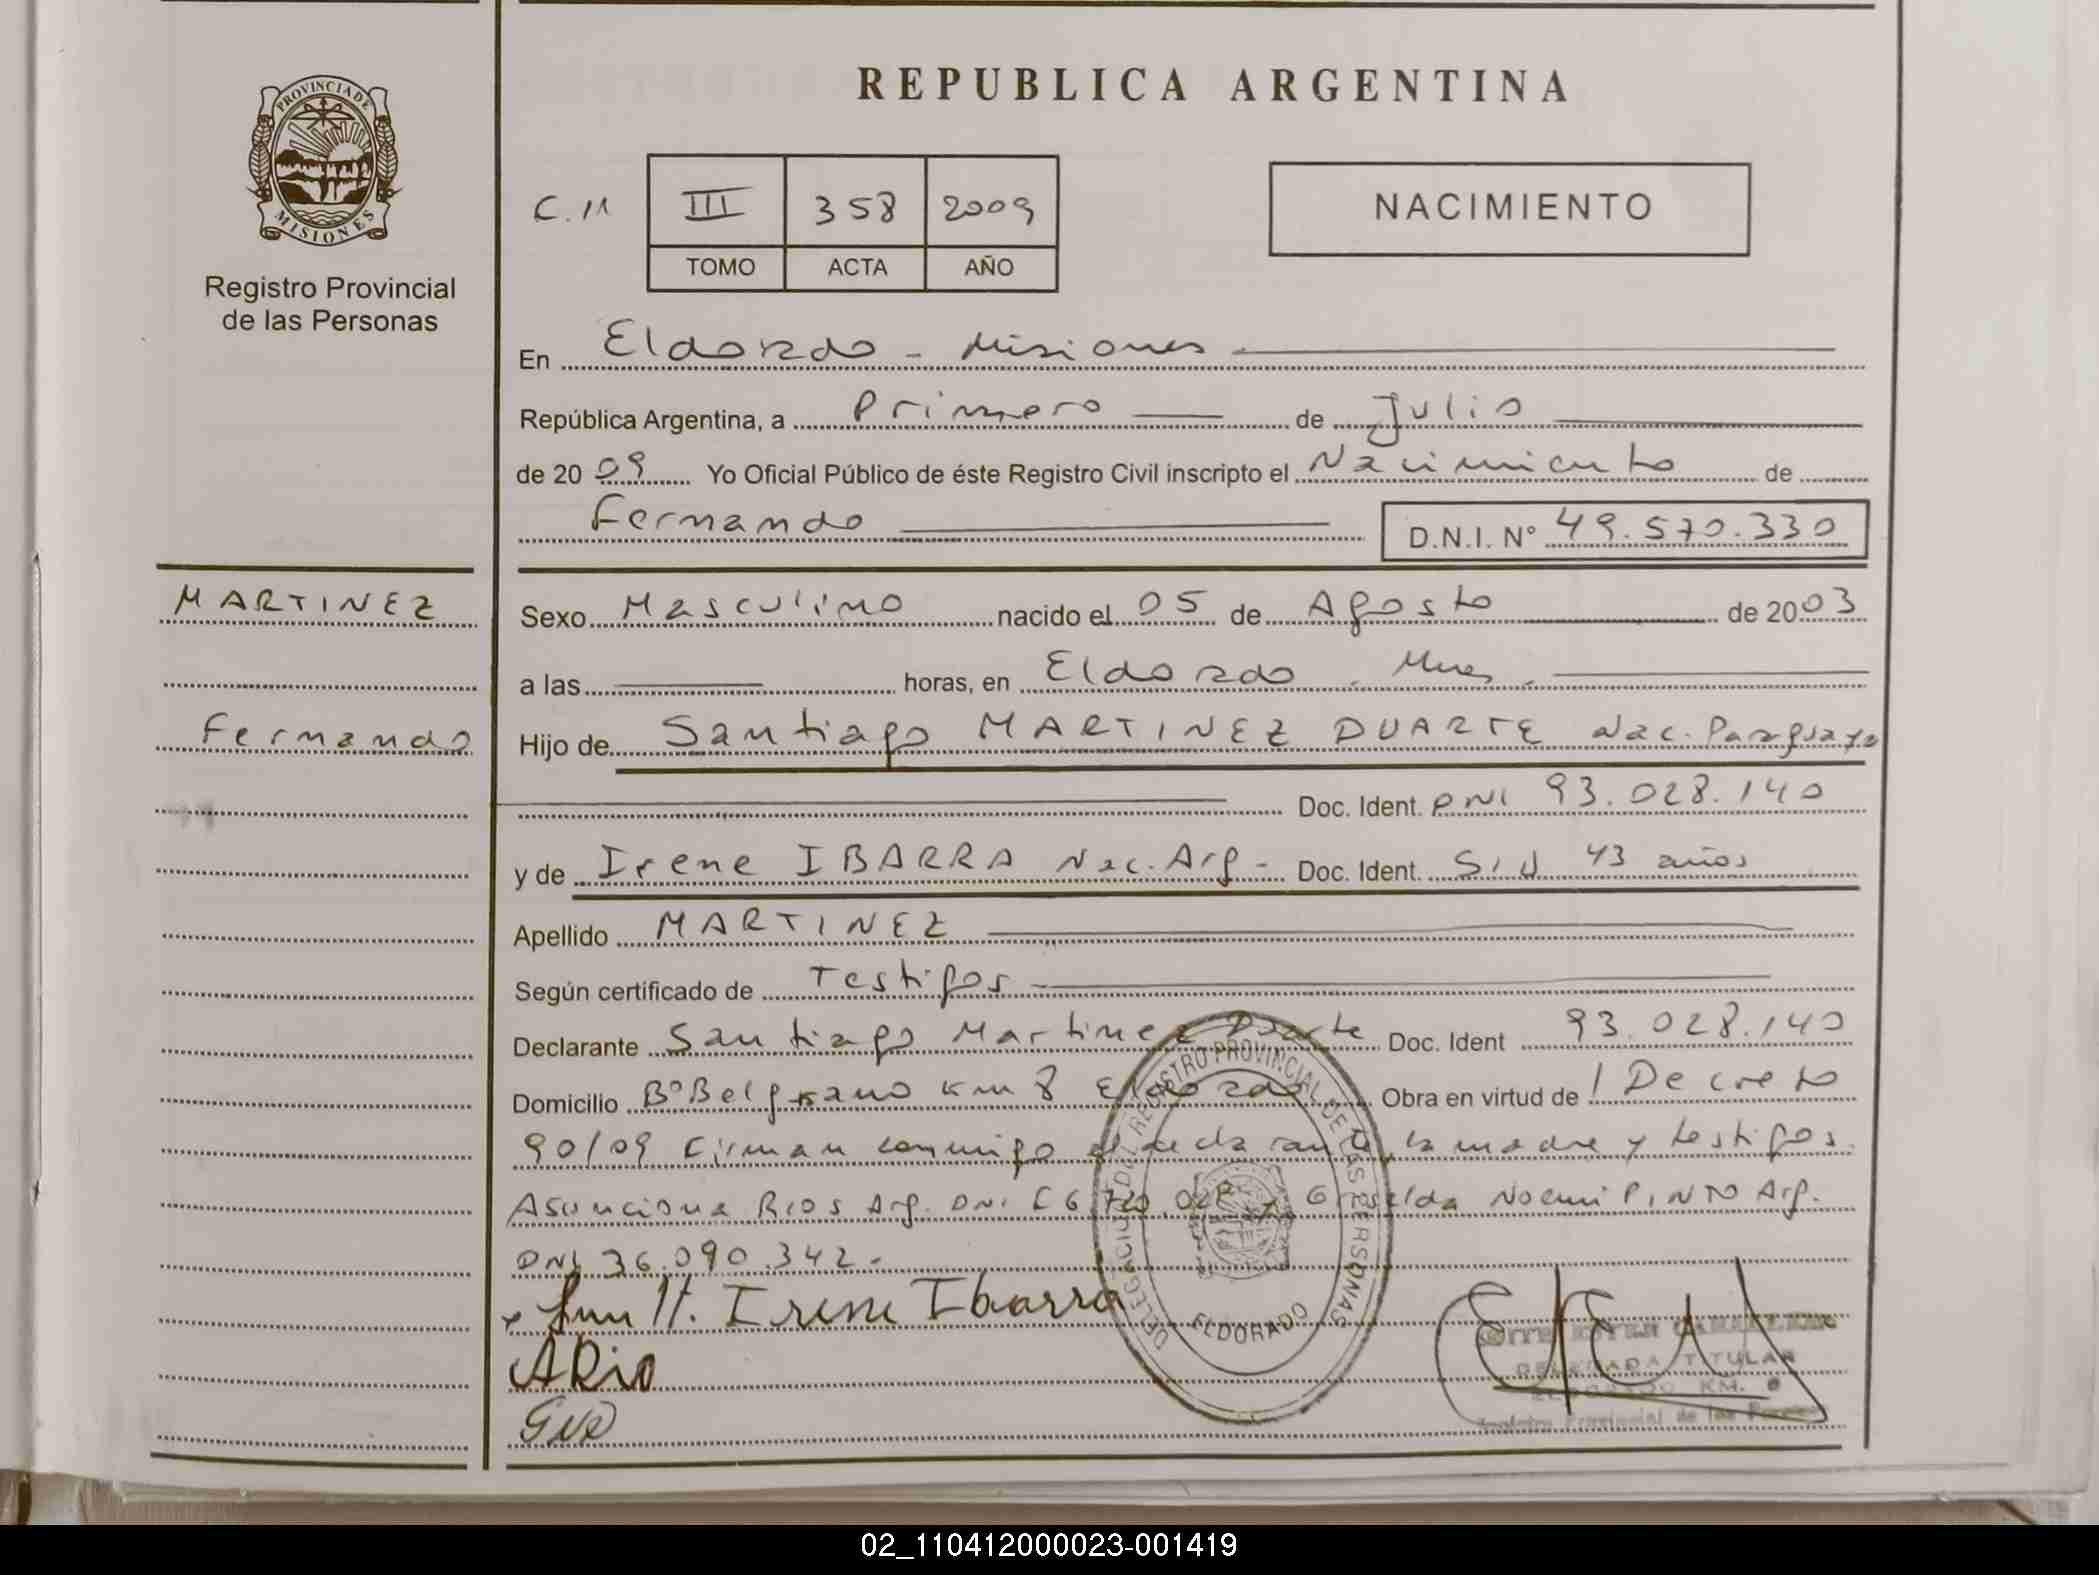 REPUBLICA ARGENTINA
PROVINCIA DE
MISIONES
Registro Provincial
de las Personas
C. 11
III 358 2009
TOMO ACTA AÑO
NACIMIENTO
En Eldorado - Misiones
República Argentina, a Primero de Julio
de 2009 Yo Oficial Público de éste Registro Civil inscripto el Nacimiento de
Fernando D.N.I. N° 49.570.330
MARTINEZ
Sexo Masculino nacido el 05 de Agosto de 2003
a las horas, en Eldorado - Mnes.
Fernando
Hijo de Santiago MARTINEZ DUARTE Nac. Paraguaya
Doc. Ident. DNI 93.028.140
y de Irene IBARRA Nac. Arg - Doc. Ident. S/U 43 años
Apellido MARTINEZ
Según certificado de Testigos
Declarante Santiago Martinez Duarte Doc. Ident 93.028.140
Domicilio B° Belgrano Km 8 Eldorado Obra en virtud de / Decreto
90/09 Firman conmigo el declarante, la madre y testigos.
Asunciona Rios Arg. DNI Griselda Noemi PINTO Arg.
DNI 36.090.342.-
Irene Ibarra
ARio
DELEGACION DEL REGISTRO PROVINCIAL DE LAS PERSONAS
ELDORADO
DELEGADA TITULAR
ELDORADO KM. 8
Registro Provincial de las Personas
02_110412000023-001419